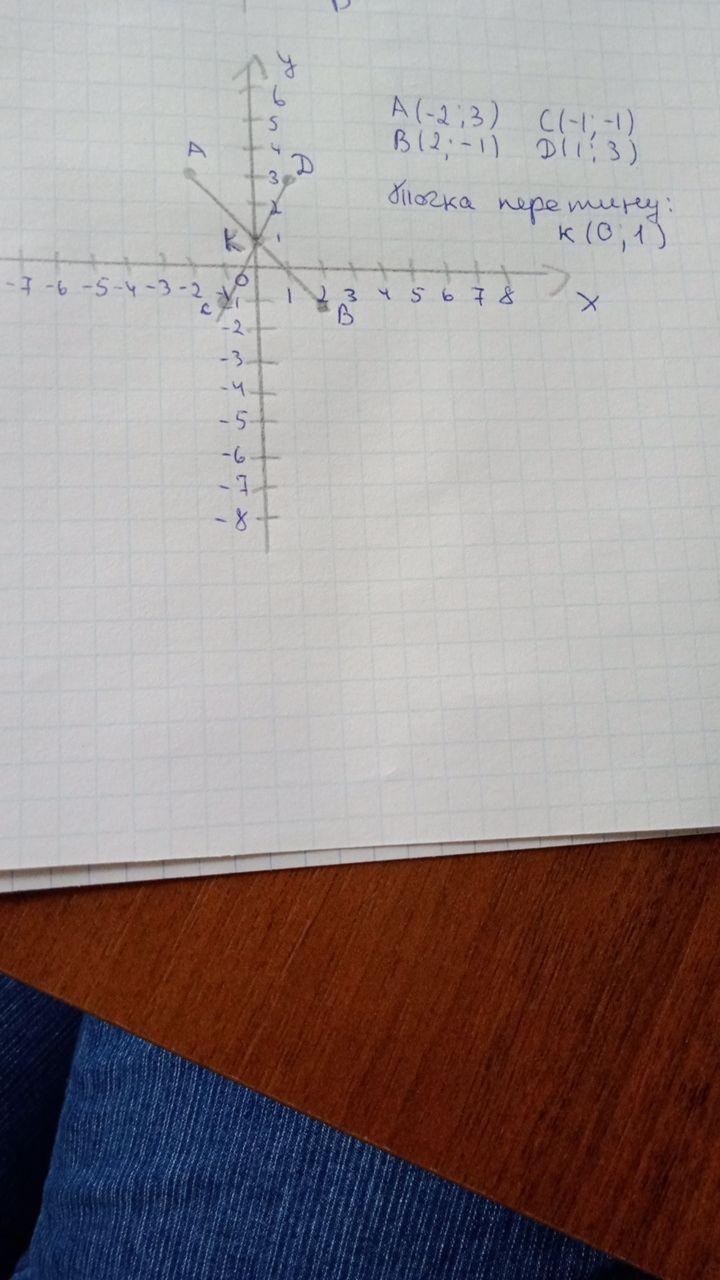 y
6
5
4
3
2
1
A
D
K
A(-2; 3) C(-1; -1)
B(2; -1) D(1; 3)
Точка перетину:
K(0; 1)
-7 -6 -5 -4 -3 -2 -1 0 1 2 3 4 5 6 7 8
X
C
B
-1
-2
-3
-4
-5
-6
-7
-8